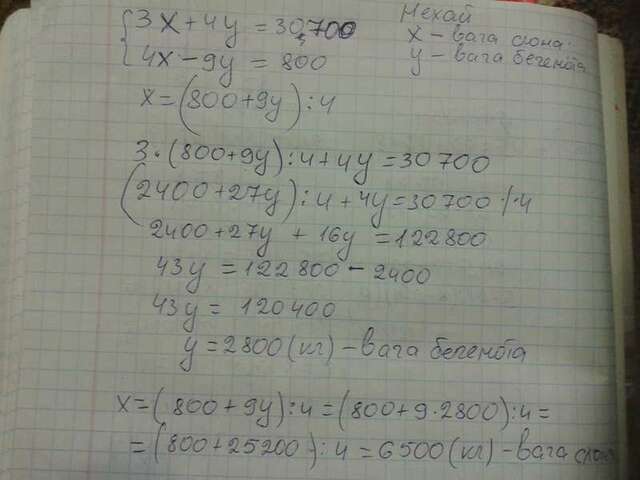 3x+4y=30700
4x-9y=800
Нехай
x - вага слона.
y - вага бегемота
x=(800+9y):4
3·(800+9y):4+4y=30700
(2400+27y):4+4y=30700 /·4
2400+27y+16y=122800
43y=122800-2400
43y=120400
y=2800(кг)-вага бегемота
x=(800+9y):4=(800+9·2800):4=
=(800+25200):4=6500(кг)-вага слона